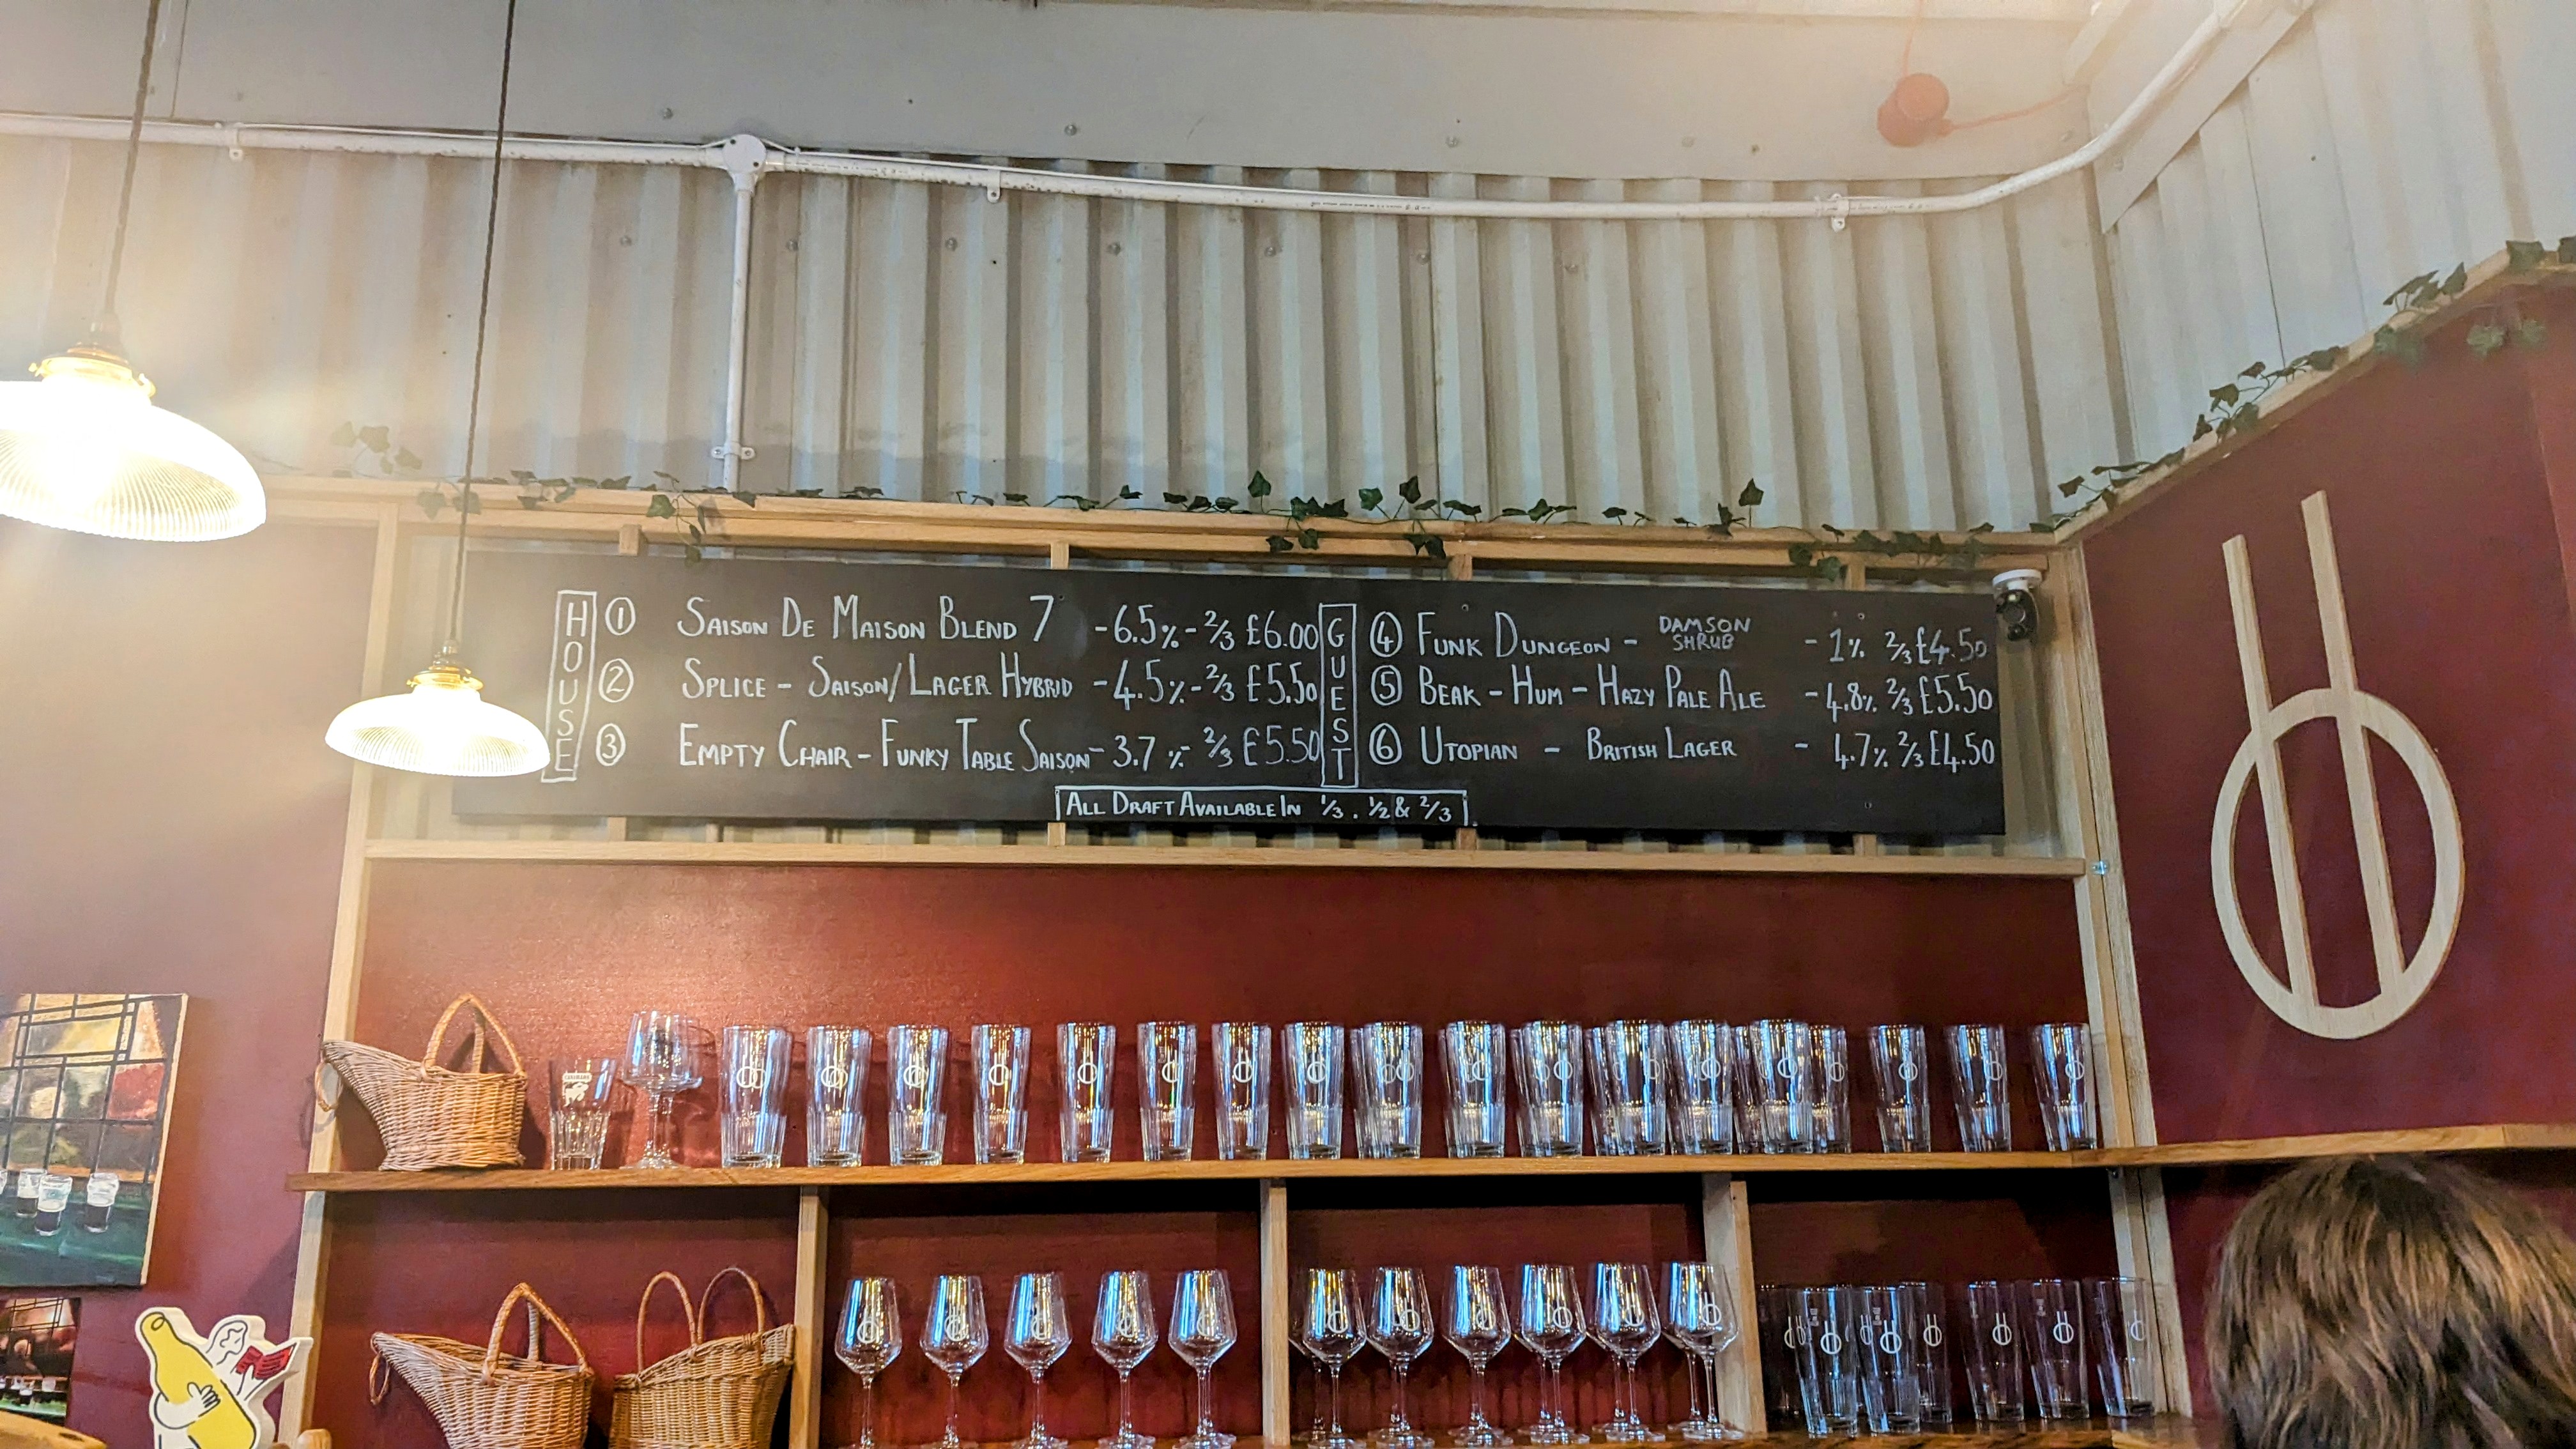 HOUSE
① SAISON DE MAISON BLEND 7 - 6.5% - ⅔ £6.00
② SPLICE - SAISON/LAGER HYBRID - 4.5% - ⅔ £5.50
③ EMPTY CHAIR - FUNKY TABLE SAISON - 3.7% - ⅔ £5.50
GUEST
④ FUNK DUNGEON - DAMSON SHRUB - 1% ⅔ £4.50
⑤ BEAK - HUM - HAZY PALE ALE - 4.8% ⅔ £5.50
⑥ UTOPIAN - BRITISH LAGER - 4.7% ⅔ £4.50
ALL DRAFT AVAILABLE IN ⅓, ½ & ⅔